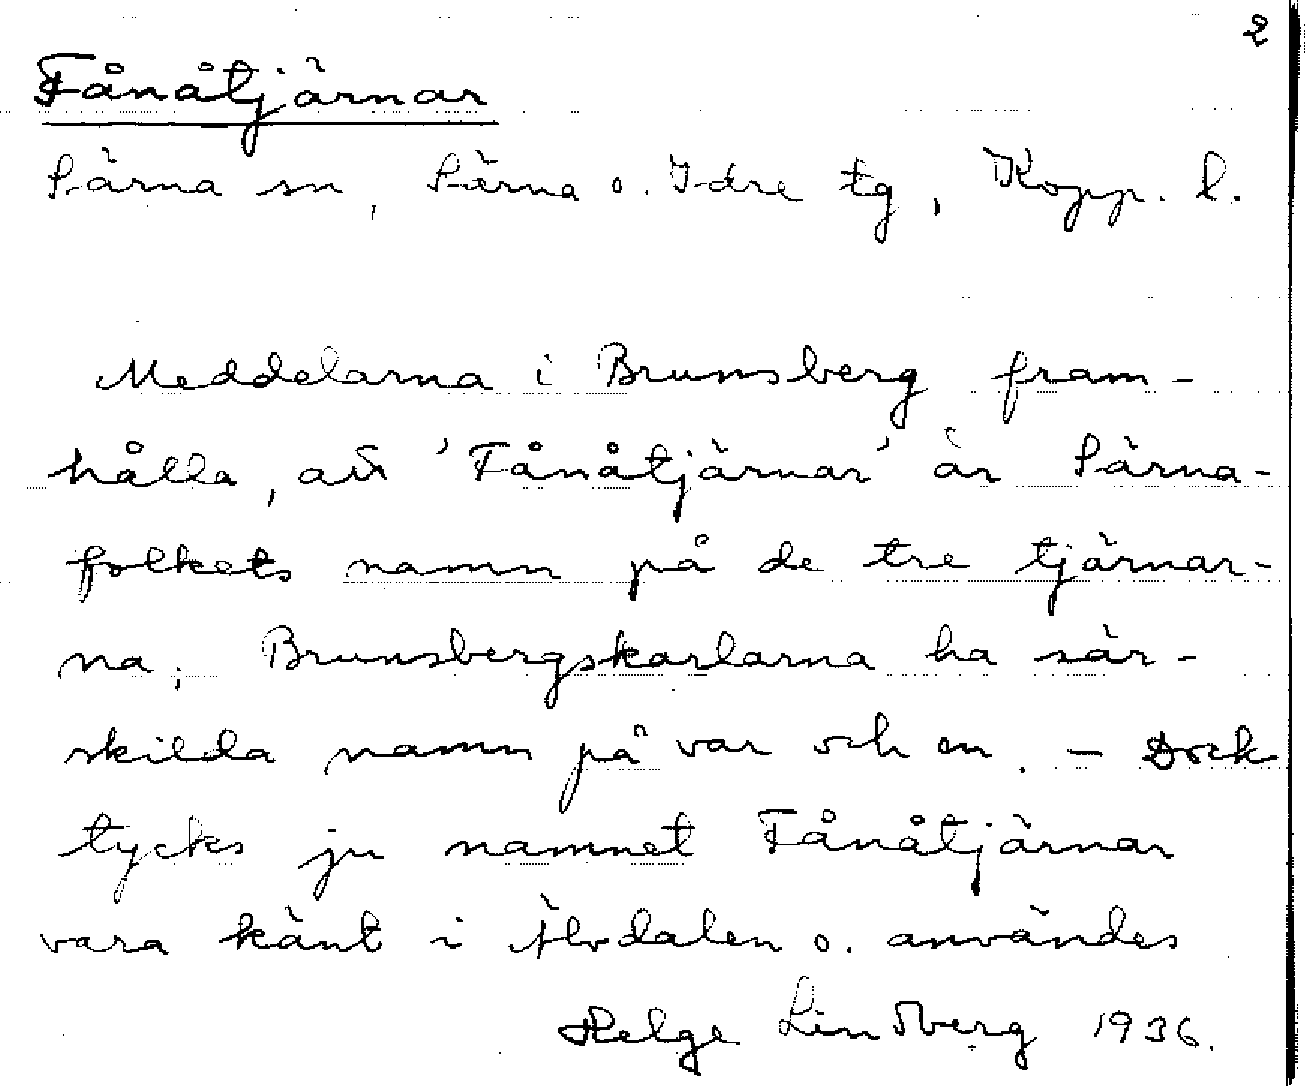 2
Fånåtjärnar
Särna sn, Särna o. Idre tg, Kopp. l.
Meddelarna i Brunsberg fram-
hålla, att 'Fånåtjärnar' är Särna-
folkets namn på de tre tjärnar-
na; Brunsbergskarlarna ha sär-
skilda namn på var och en. - Dock
tycks ju namnet Fånåtjärnar
vara känt i Älvdalen o. användes
Helge Lindberg 1936.